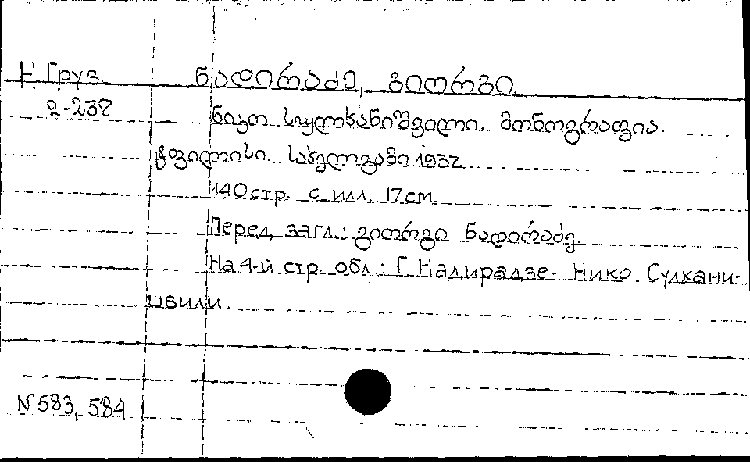 Н Груз ნადირაძე, გიორგი
2-237 ნიკო სულხანიშვილი. მონოგრაფია.
ტფილისი. სახელგამი 1937
140 стр. с илл. 17 см.
Перед загл.: გიორგი ნადირაძე
На 4-й стр. обл.: Г. Надирадзе- Нико Сулхани-
швили.
N 583, 584